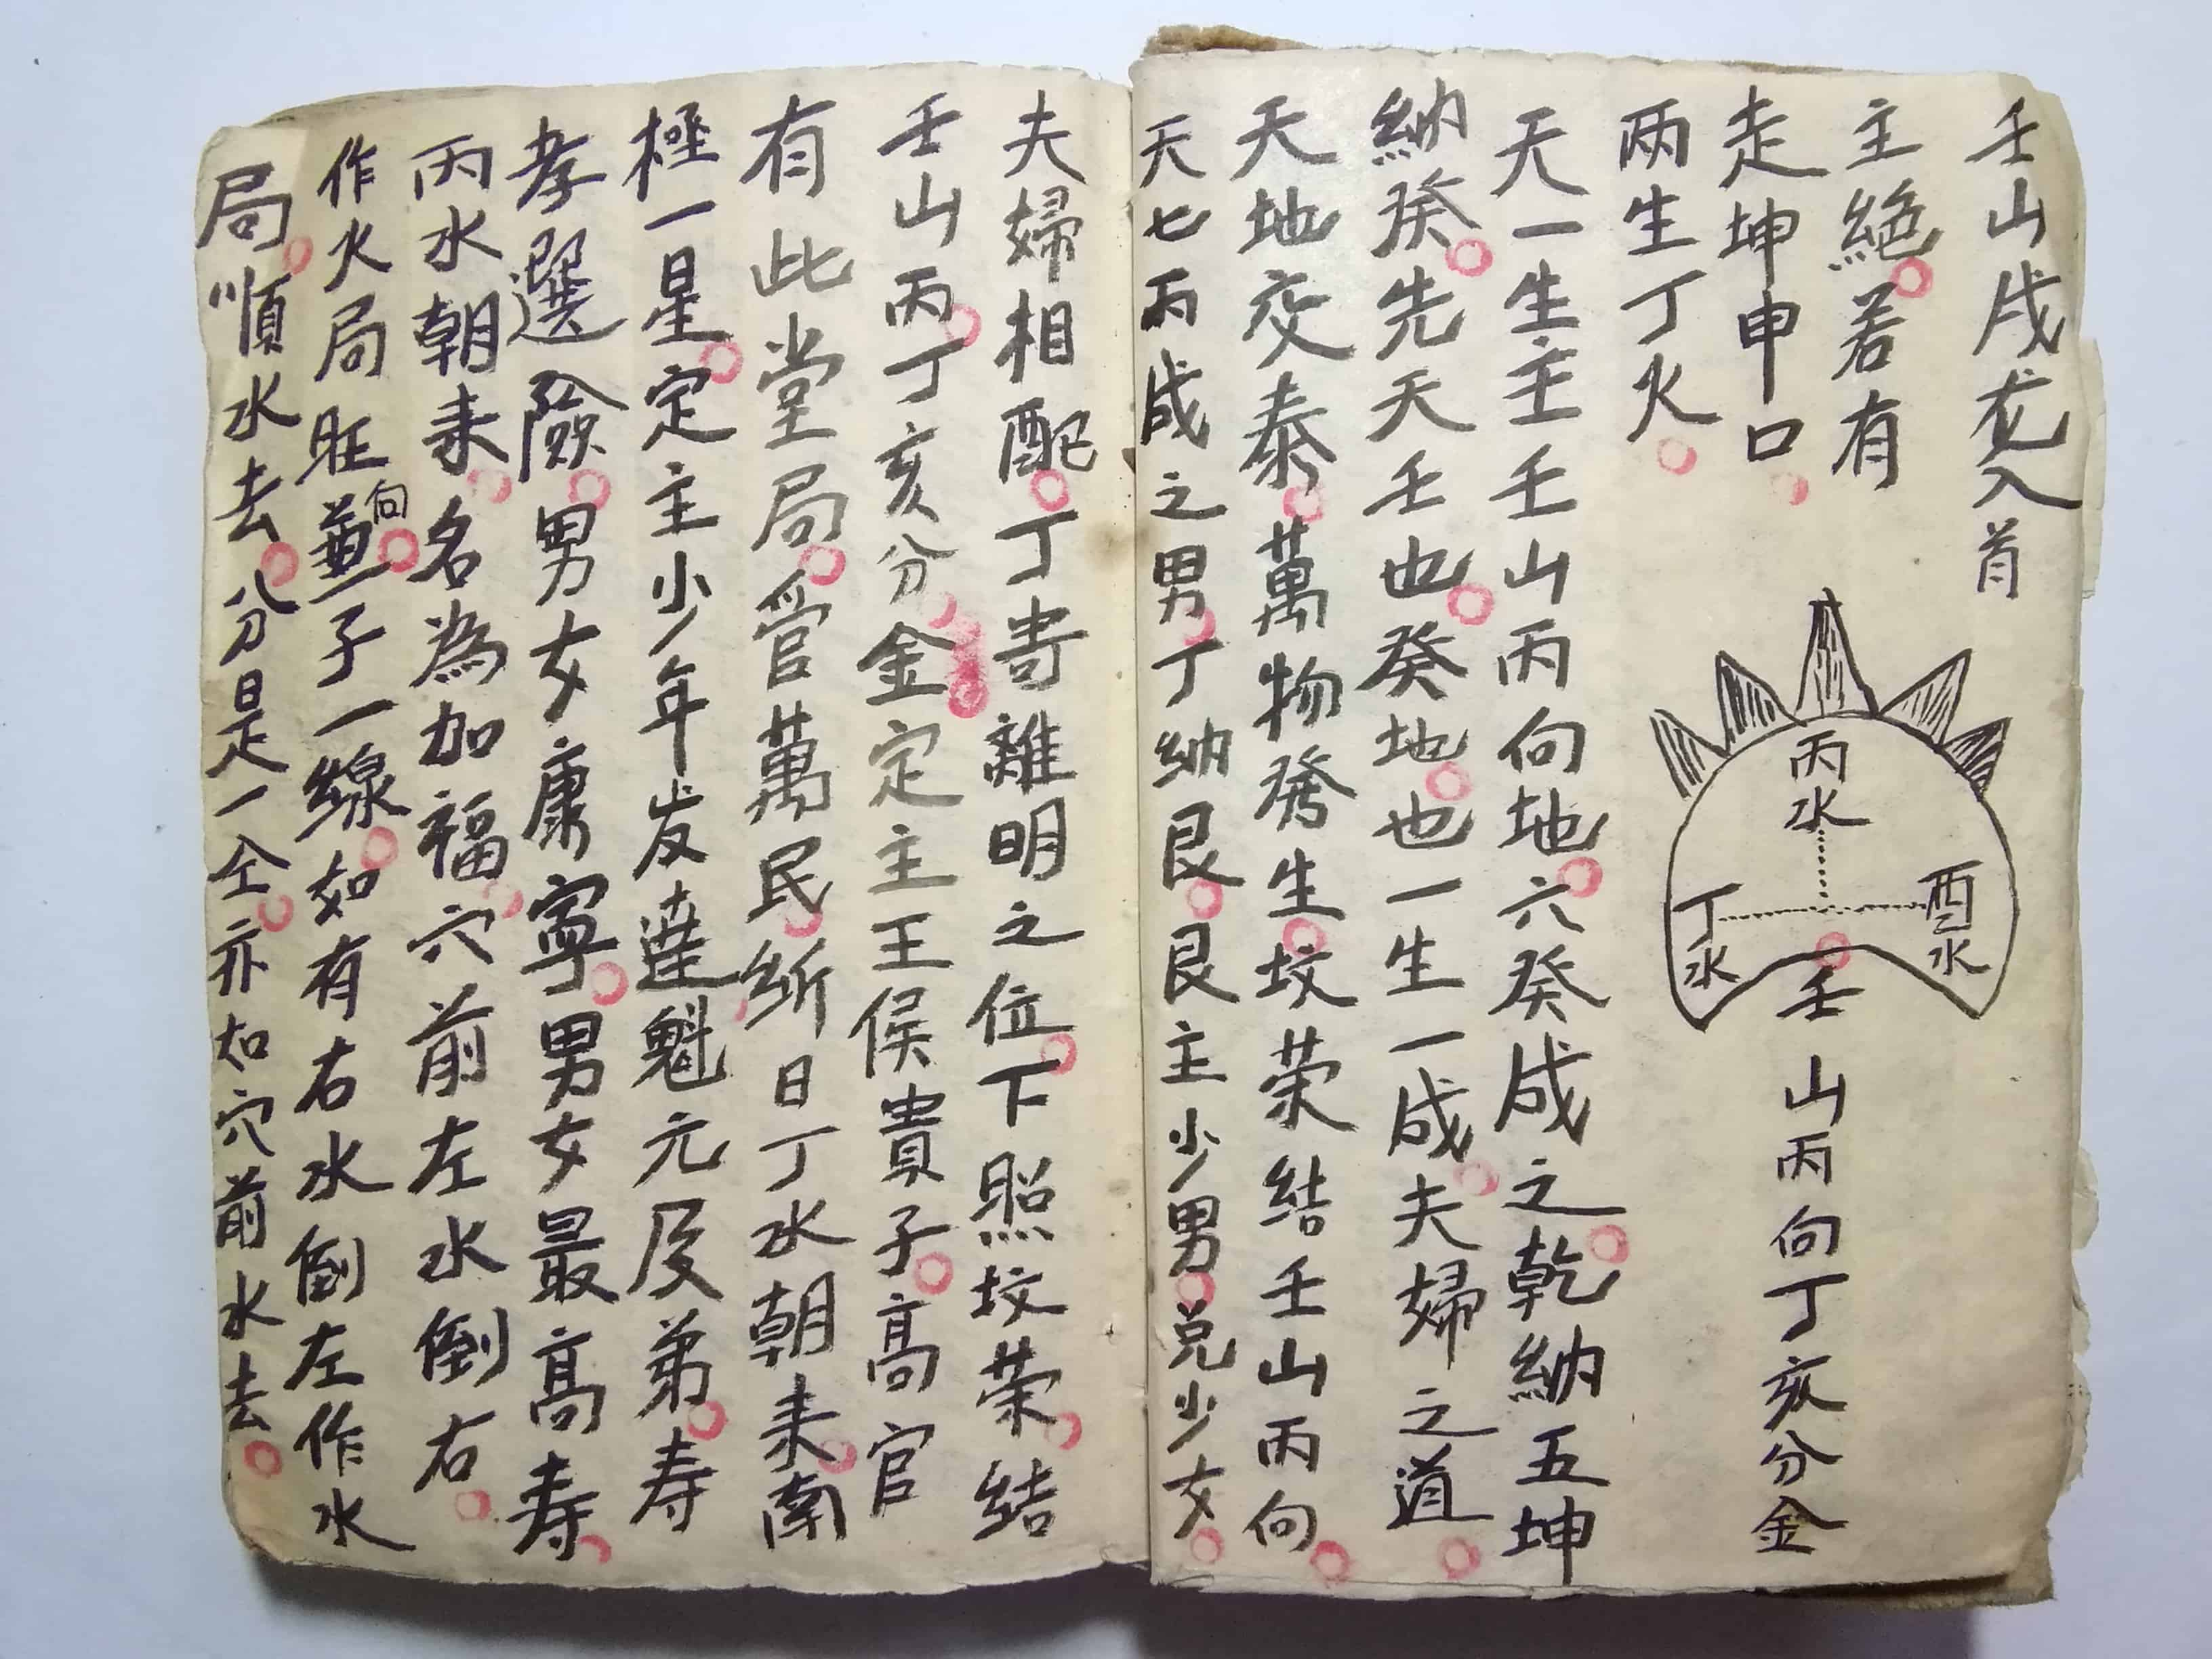 壬山戌龙入首
主絕若有
走坤申口
两生丁火
丙水
丁水
酉水
壬山丙向丁亥分金
天一生主壬山丙向地六癸成之乾納五坤
納癸先天壬也癸地也一生一成夫婦之道
天地交泰萬物発生坟荣結壬山丙向
天七丙成之男丁納艮艮主少男兑少女
夫婦相配丁寄離明之位下照坟荣結
壬山丙丁亥分金定主王侯貴子高官
有此堂局管萬民斩日丁水朝来南
極一星定主少年发達魁元及弟寿
孝選險男女康寧男女最高寿
丙水朝来名為加福穴前左水倒右
作火局旺向兼子一線如有右水倒左作水
局順水去分是一仝亦右穴前水去